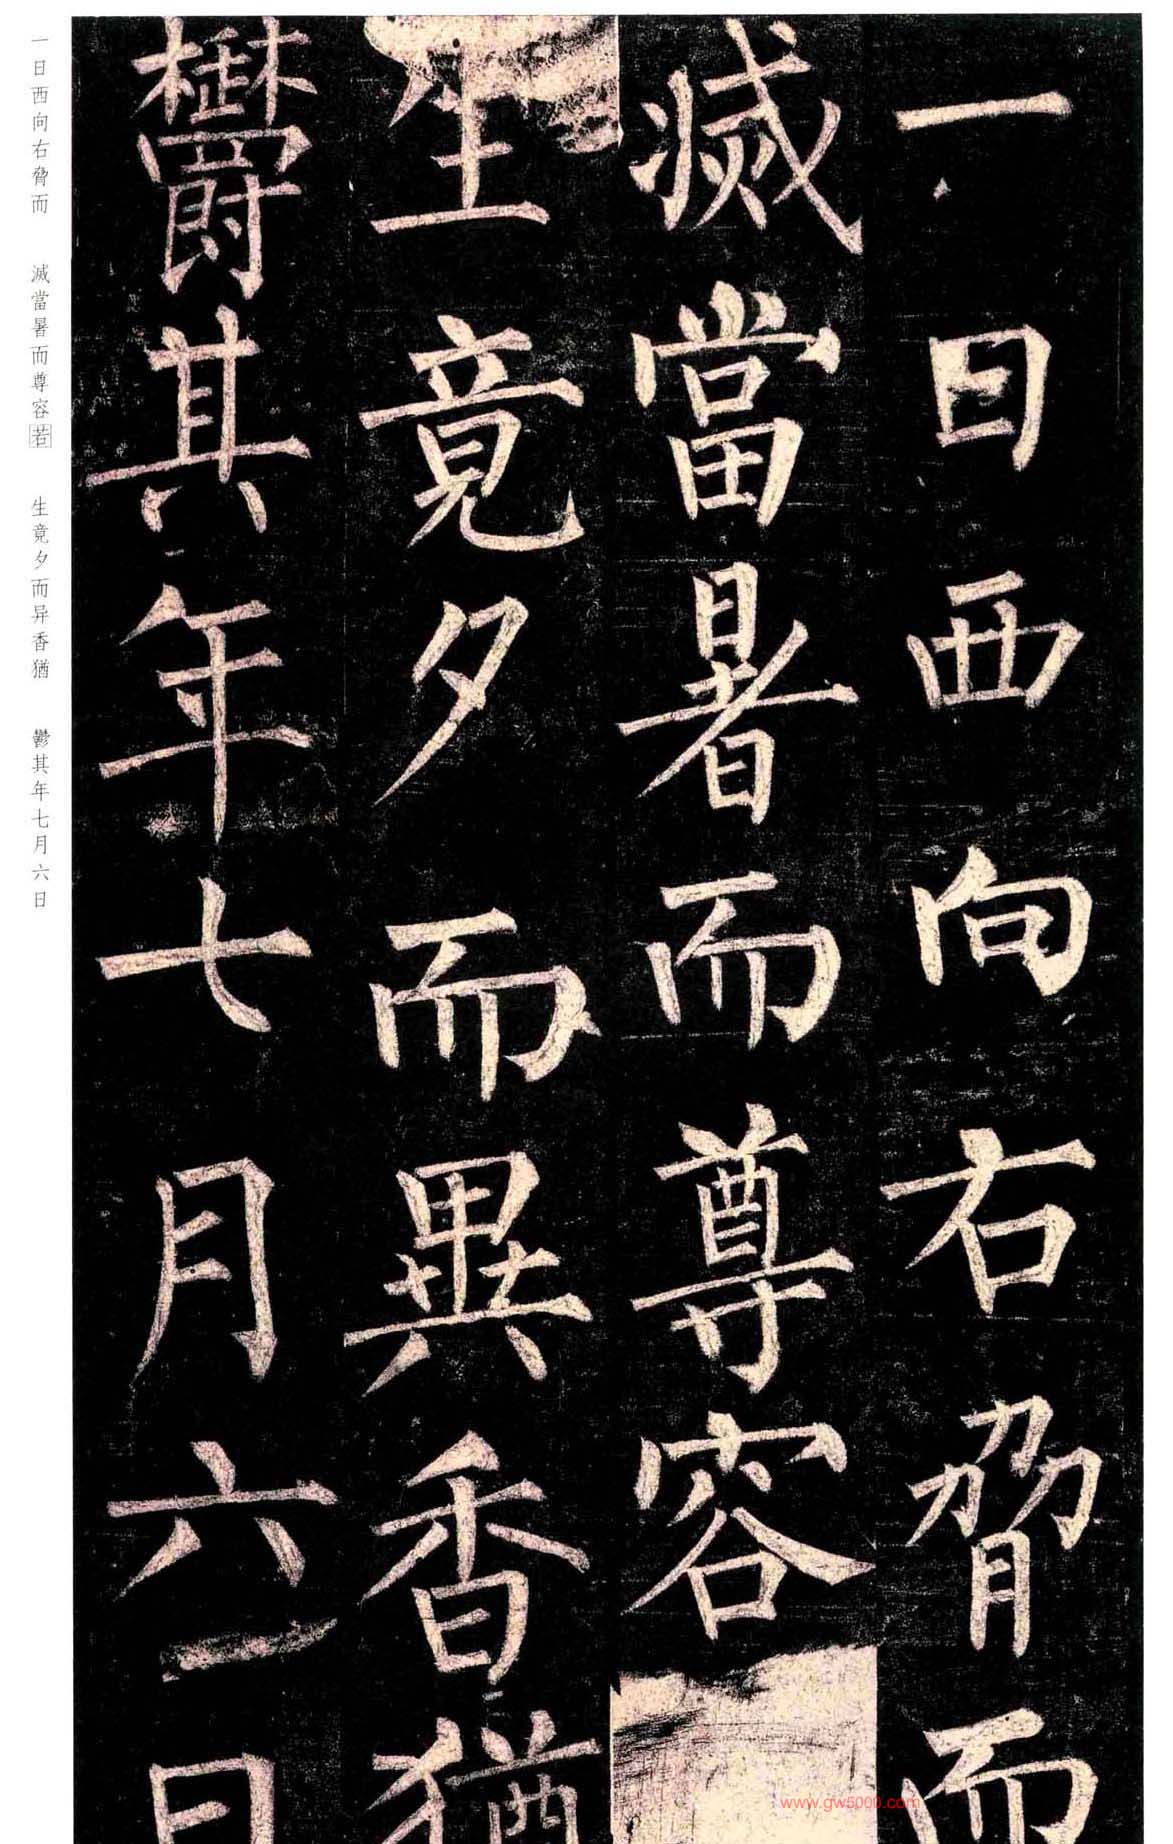 一日西向右脅而
滅當暑而尊容
生竟夕而異香猶
欎其年七月六日
一日西向右脅而 滅當暑而尊容若 生竟夕而异香猶 鬱其年七月六日
www.gw5000.com